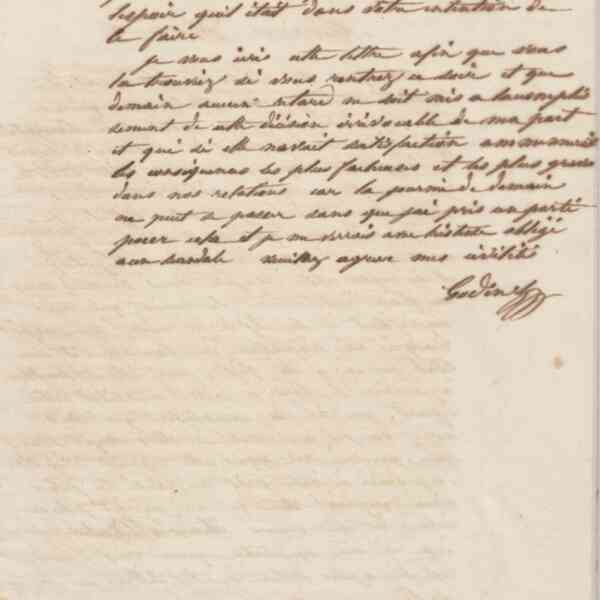 l'espoir qu'il était dans votre intention de
le faire
je vous écris cette lettre afin que vous
la trouviez si vous rentrez ce soir et que
demain aucun retard ne soit mis a laccomplis
sement de cette décision irrévocable de ma part
et qui si elle navait satisfaction
les plus facheuses et les plus graves
dans nos relations car la journée de demain
ne peut se passer sans que jai pris un parti
pour cela et je me verrais a me obligé
a un scandale veuillez agreer mes civilités
Godin